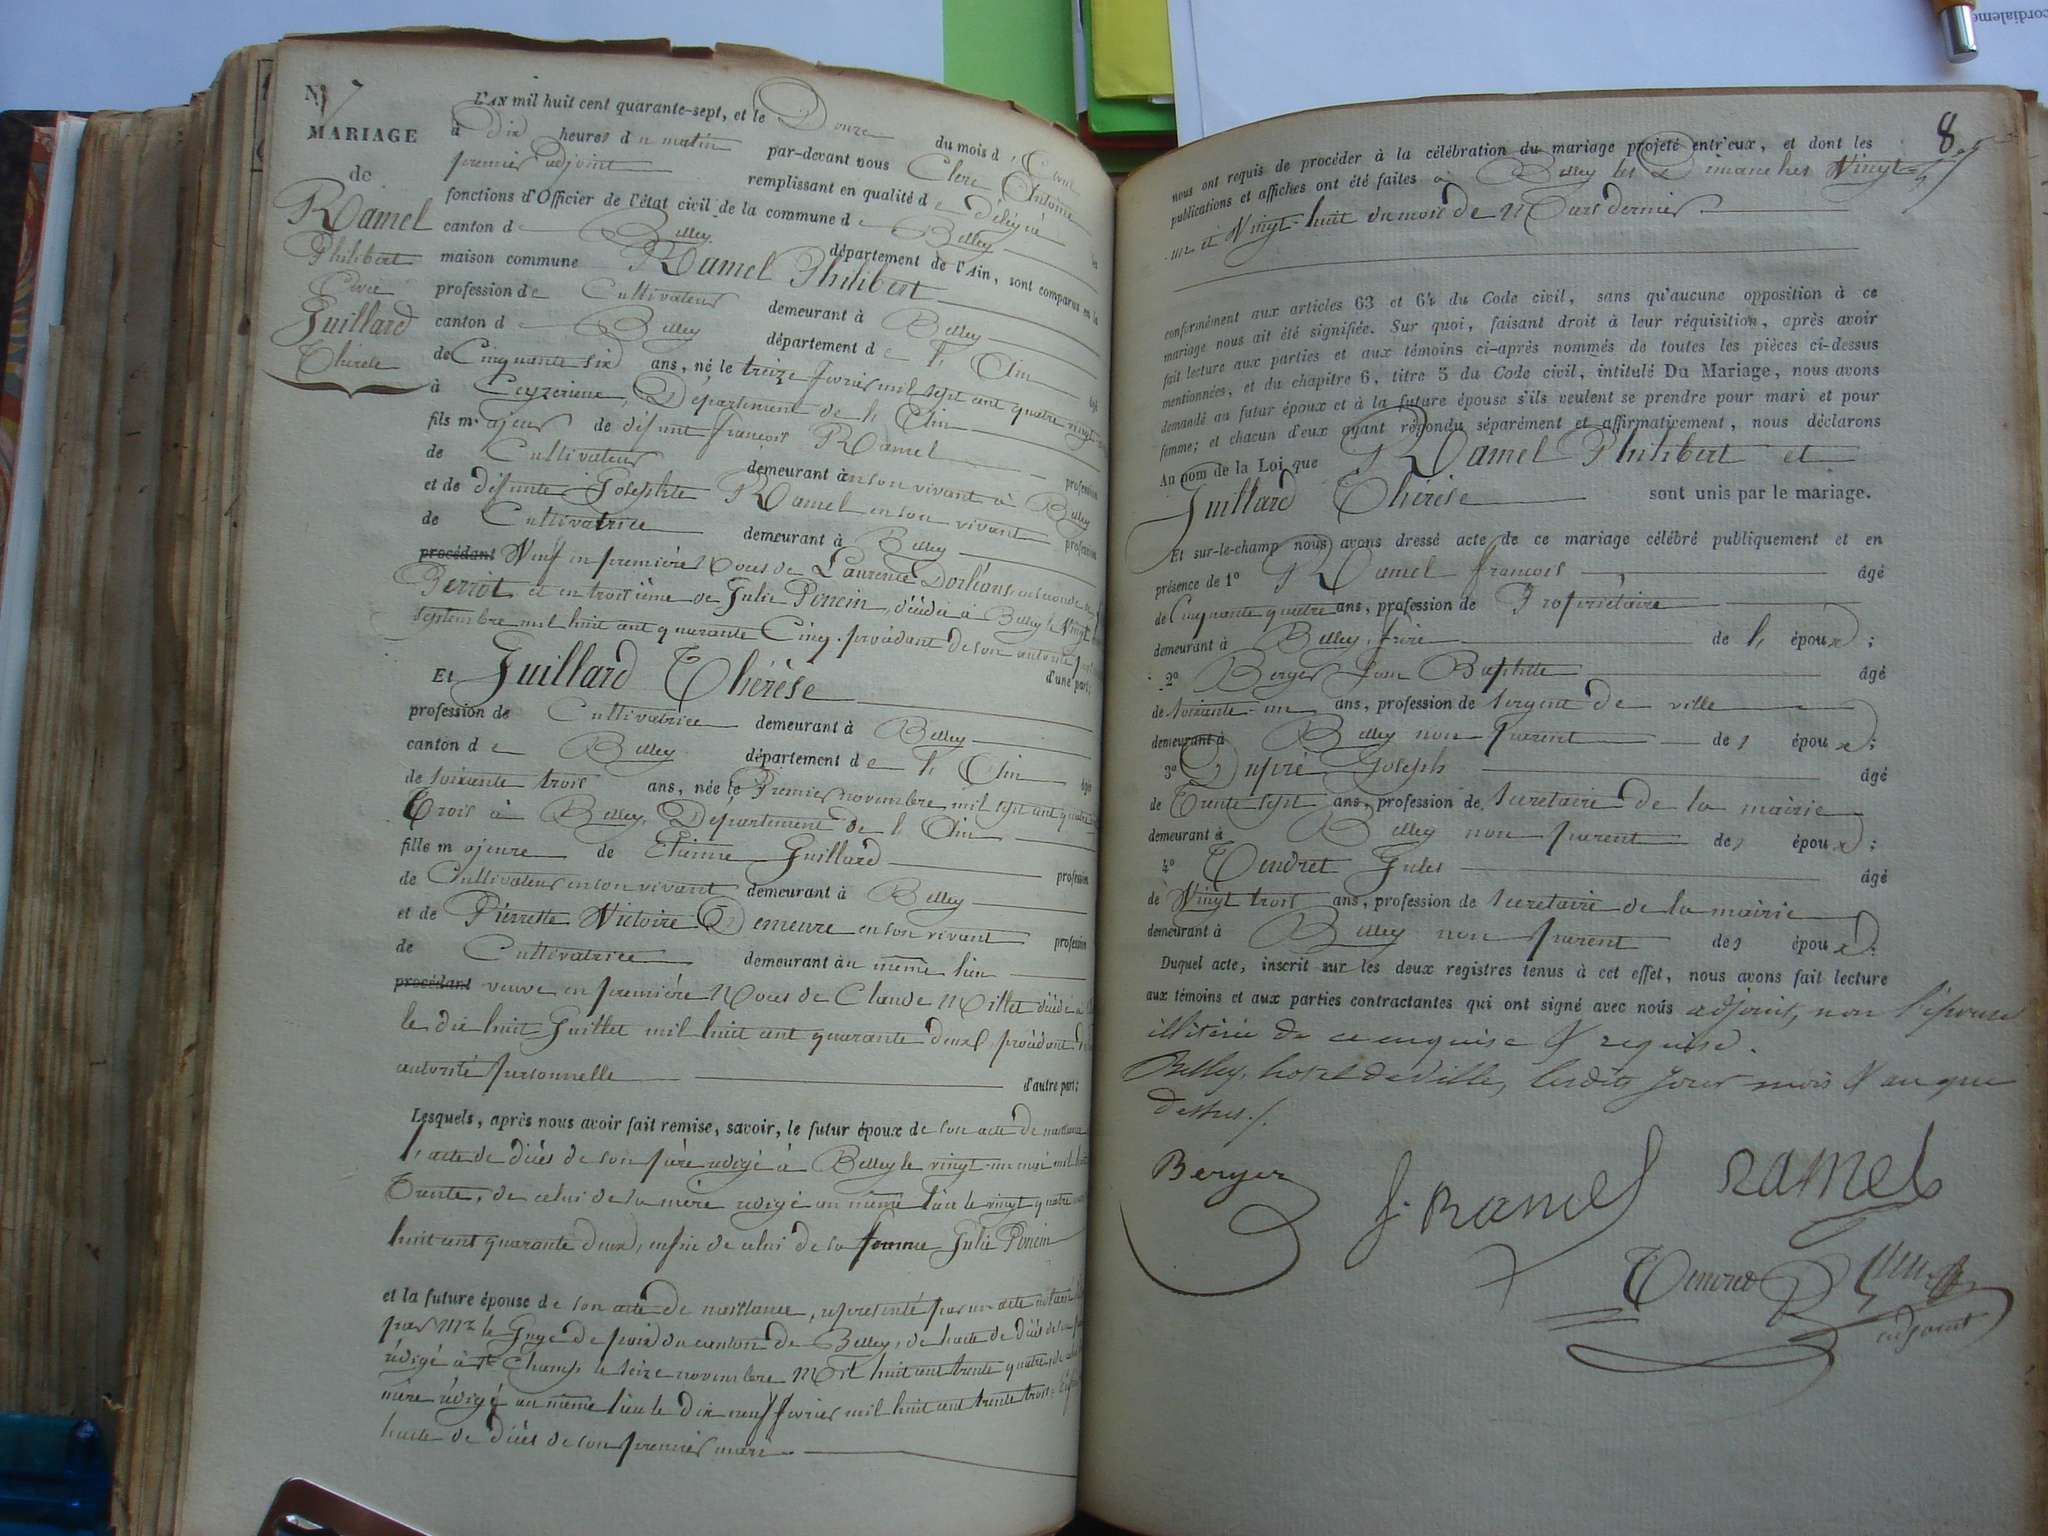 N 7
MARIAGE
de
Ramel
Philibert
Avec
Guillard
Thérèse
L'AN mil huit cent quarante-sept, et le Douze du mois d'Avril
à dix heures du matin par-devant nous Clerc Antoine
premier adjoint remplissant en qualité de délégué les
fonctions d'Officier de l'état civil de la commune de Belley
canton de Belley département de l'Ain, sont comparus en la
maison commune Ramel Philibert
profession de Cultivateur demeurant à Belley
canton de Belley département de l'Ain âgé
de Cinquante six ans, né le treize fevrier mil sept cent quatre vingt
à Ceyzerieux, Département de l'Ain
fils majeur de défunt françois Ramel profession
de Cultivateur demeurant à en son vivant à Belley
et de défunte Josephte Ramel en son vivant profession
de Cultivatrice demeurant à Belley
procédant Veuf en première Noces de Laurence Dorléans, en seconde de
Perriot, et en troisième de Julie Poncin, décédée à Belley le Vingt
septembre mil huit cent quarante Cinq. procédant de son autorité
d'une part;
Et Guillard Thérèse
profession de Cultivatrice demeurant à Belley
canton de Belley département de l'Ain âgée
de soixante trois ans, née le Premier novembre mil sept cent quatre
Trois à Belley, Département de l'Ain
fille majeure de Etienne Guillard profession
de Cultivateur en son vivant demeurant à Belley
et de Pierrette Victoire Demeure en son vivant profession
de Cultivatrice demeurant au même lieu
procédant veuve en première Noces de Claude Millet décédé à
le dix huit Juillet mil huit cent quarante deux, procédant
autorité personnelle d'autre part;
Lesquels, après nous avoir fait remise, savoir, le futur époux de son acte de naissance
l'acte de décès de son père redigé à Belley le vingt-un mai mil huit
Trente, de celui de sa mère redigé au même lieu le vingt quatre
huit cent quarante deux, enfin de celui de sa femme Julie Poncin
et la future épouse de son acte de naissance, représenté par un acte notarié
par Mr le Juge de paix du canton de Belley, de l'acte de décès de son père
rédigé à St Champ le seize novembre Mil huit cent trente quatre, de celui
mère rédigé au même lieu le dix neuf fevrier mil huit cent trente trois,
l'acte de décès de son premier mari.
8
nous ont requis de procéder à la célébration du mariage projeté entr'eux, et dont les
publications et affiches ont été faites à Belley les Dimanches Vingt-
un et Vingt-huit du mois de Mars dernier
conformément aux articles 63 et 64 du Code civil, sans qu'aucune opposition à ce
mariage nous ait été signifiée. Sur quoi, faisant droit à leur réquisition, après avoir
fait lecture aux parties et aux témoins ci-après nommés de toutes les pièces ci-dessus
mentionnées, et du chapitre 6, titre 5 du Code civil, intitulé Du Mariage, nous avons
demandé au futur époux et à la future épouse s'ils veulent se prendre pour mari et pour
femme; et chacun d'eux ayant répondu séparément et affirmativement, nous déclarons
Au nom de la Loi que Ramel Philibert et
Guillard Thérèse sont unis par le mariage.
Et sur-le-champ nous avons dressé acte de ce mariage célébré publiquement et en
présence de 1º Ramel françois âgé
de Cinquante quatre ans, profession de Propriétaire
demeurant à Belley, frère de l'époux;
2º Berger Jean Baptiste âgé
de soixante-un ans, profession de sergent de ville
demeurant à Belley non parent des époux;
3º Dupré Joseph âgé
de Trente sept ans, profession de secretaire de la mairie
demeurant à Belley non parent des époux;
4º Tendret Jules âgé
de Vingt trois ans, profession de secretaire de la mairie
demeurant à Belley non parent des époux;
Duquel acte, inscrit sur les deux registres tenus à cet effet, nous avons fait lecture
aux témoins et aux parties contractantes qui ont signé avec nous adjoint, non l'épouse
illitérée de ce enquise & requise.
Belley, hotel de Ville, lesdits jour mois & an que
dessus./.
Berger
f. Ramel
Ramel
Tendret
adjoint